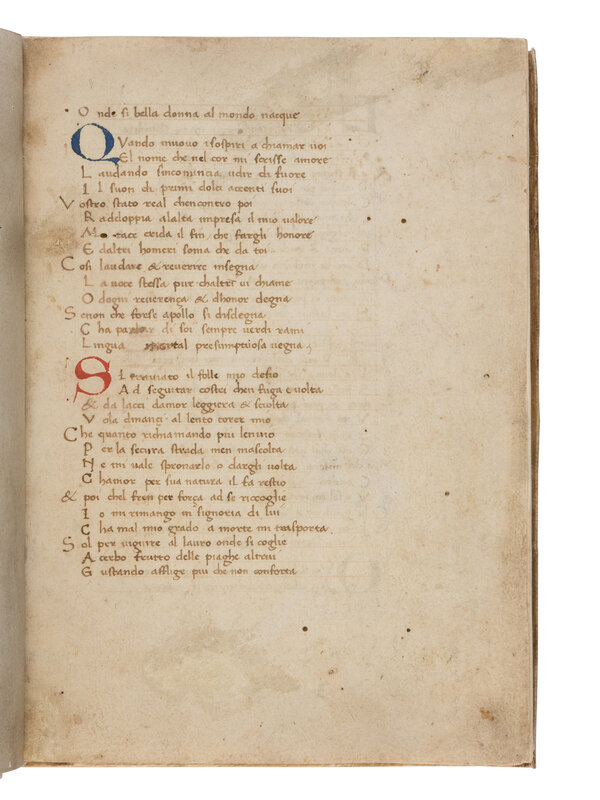 Onde si bella donna al mondo nacque
QVando muovo i sospiri a chiamar uoi
El nome che nel cor mi scrisse amore
Laudando sincomincia udir di fuore
Il suon di primi dolci accenti suoi
Vostro stato real chencontro poi
Raddoppia alalta impresa il mio ualore
Ma tace crida il fin che fargli honore
E daltri homeri soma che da toi
Cosi laudare & reuerire insegna
La uoce stessa pur chaltri ui chiame
O dogni reuerença & dhonor degna
Senon che forse apollo si disdegna
Cha parlar di soi sempre uerdi rami
Lingua mortal presumptuosa uegna
SI trauiato il folle mio desio
Ad seguitar costei chen fuga e uolta
& da lacci damor leggiera & sciolta
Vola dinanci al lento corer mio
Che quanto richiamando piu lenuio
Per la secura strada men mascolta
Ne mi uale spronarlo o dargli uolta
Chamor per sua natura il fa restio
& poi chel fren per força ad se riccoglie
Io mi rimango in signoria di lui
Cha mal mio grado a morte mi trasporta
Sol per uignire al lauro onde si coglie
Acerbo frutto delle piaghe altrui
Gustando afflige piu che non conforta